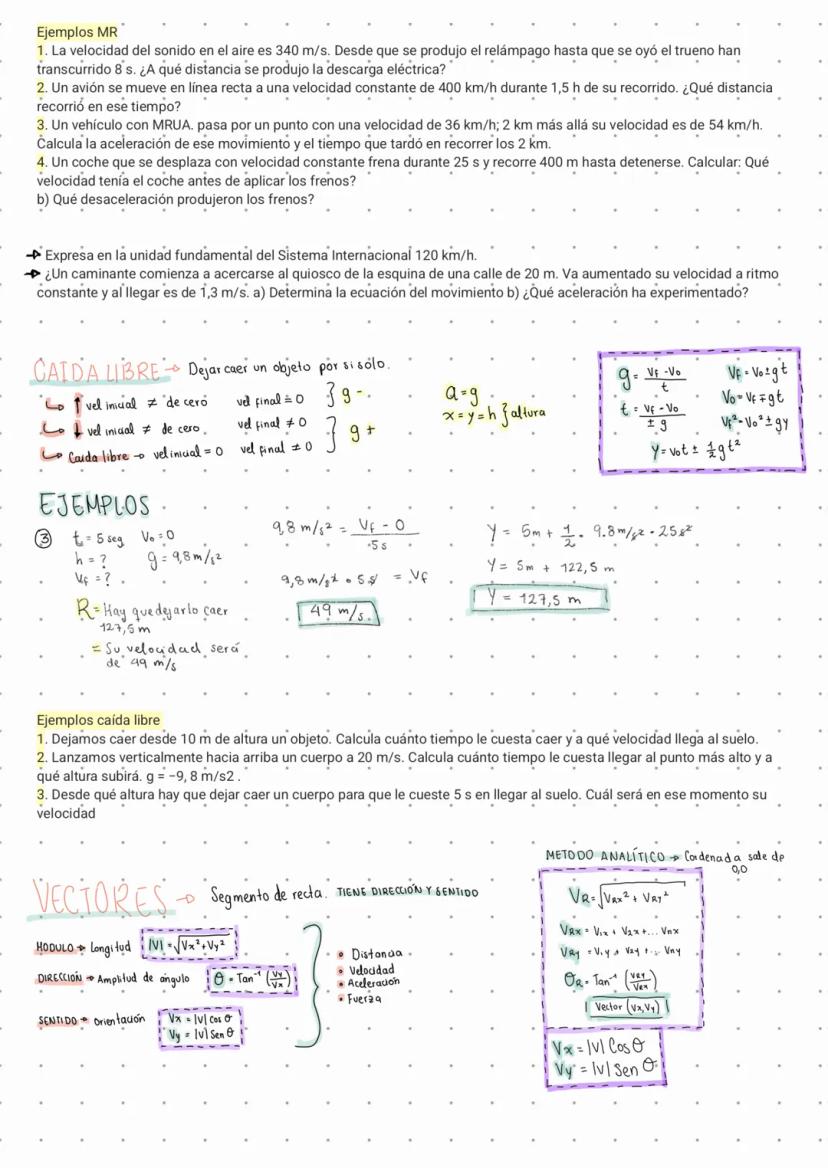 Ejemplos MR
1. La velocidad del sonido en el aire es 340 m/s. Desde que se produjo el relámpago hasta que se oyó el trueno han
transcurrido 8 s. ¿A qué distancia se produjo la descarga eléctrica?
2. Un avión se mueve en línea recta a una velocidad constante de 400 km/h durante 1,5 h de su recorrido. ¿Qué distancia
recorrió en ese tiempo?
3. Un vehículo con MRUA. pasa por un punto con una velocidad de 36 km/h; 2 km más allá su velocidad es de 54 km/h.
Calcula la aceleración de ese movimiento y el tiempo que tardó en recorrer los 2 km.
4. Un coche que se desplaza con velocidad constante frena durante 25 s y recorre 400 m hasta detenerse. Calcular: Qué
velocidad tenía el coche antes de aplicar los frenos?
b) Qué desaceleración produjeron los frenos?
Expresa en la unidad fundamental del Sistema Internacional 120 km/h.
¿Un caminante comienza a acercarse al quiosco de la esquina de una calle de 20 m. Va aumentado su velocidad a ritmo
constante y al llegar es de 1,3 m/s. a) Determina la ecuación del movimiento b) ¿Qué aceleración ha experimentado?
CAIDA LIBRE → Dejar caer un objeto por si solo.
↑ vel inicial ≠ de cero vel final = 0 } g -
↓ vel inicial ≠ de cero. vel final ≠ 0
Caida libre → vel inicial = 0 vel final ≠ 0 } g +
a = g
x = y = h } altura
g = Vf - Vo / t
t = Vf - Vo / ± g
Vf = Vo ± g t
Vo = Vf ∓ g t
Vf² = Vo² ± g y
Y = Vo t ± 1/2 g t²
EJEMPLOS
③ t = 5 seg Vo = 0
h = ? g = 9,8 m/s²
Vf = ?
R = Hay que dejarlo caer
127,5 m
= Su velocidad será
de 49 m/s
9,8 m/s² = Vf - 0 / 5 s
9,8 m/s² • 5 s = Vf
49 m/s
Y = 5m + 1/2 • 9.8 m/s² • 25 s²
Y = 5m + 122,5 m
Y = 127,5 m
Ejemplos caída libre
1. Dejamos caer desde 10 m de altura un objeto. Calcula cuánto tiempo le cuesta caer y a qué velocidad llega al suelo.
2. Lanzamos verticalmente hacia arriba un cuerpo a 20 m/s. Calcula cuánto tiempo le cuesta llegar al punto más alto y a
qué altura subirá. g = −9, 8 m/s2 .
3. Desde qué altura hay que dejar caer un cuerpo para que le cueste 5 s en llegar al suelo. Cuál será en ese momento su
velocidad
VECTORES → Segmento de recta. TIENE DIRECCIÓN Y SENTIDO
MODULO → Longitud |V| = √Vx² + Vy²
DIRECCIÓN → Amplitud de angulo θ = Tan⁻¹ (Vy/Vx)
SENTIDO → orientación Vx = |V| Cos θ
Vy = |V| Sen θ
• Distancia
• Velocidad
• Aceleración
• Fuerza
METODO ANALÍTICO → Cordenada sale de
0,0
VR = √VRx² + VRy²
VRx = V1x + V2x + ... Vnx
VRy = V1y + V2y + ... Vny
θR = Tan⁻¹ (VRy/VRx)
Vector (Vx, Vy)
Vx = |V| Cos θ
Vy = |V| Sen θ